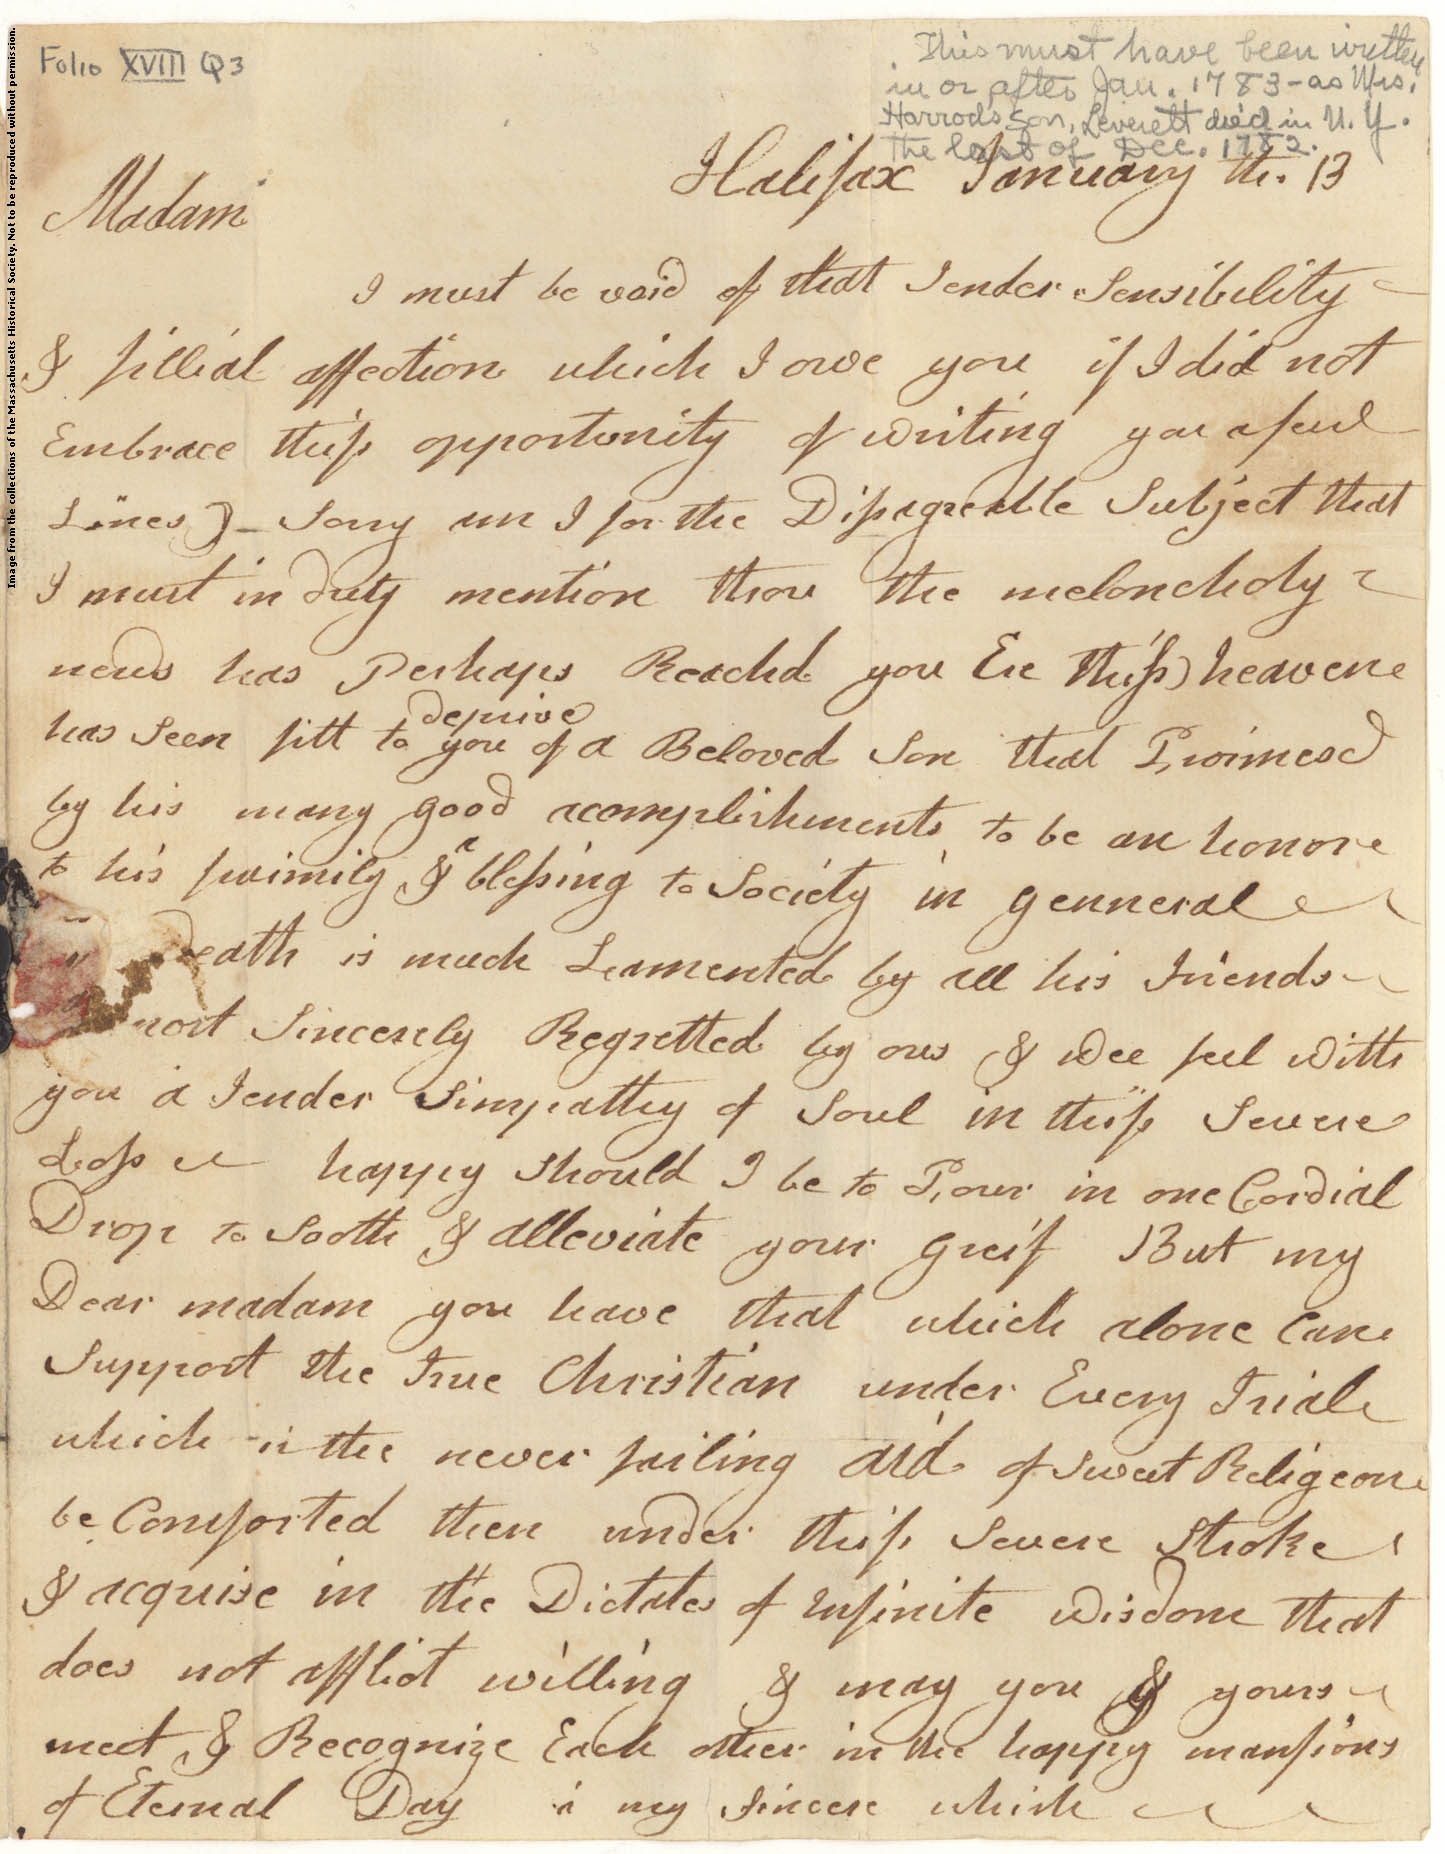 Image from the collections of the Massachusetts Historical Society. Not to be reproduced without permission.
Folio XVIII Q3
This must have been written
in or after Jan. 1783 - as Mrs.
Harrods son, Leverett died in N.Y.
the last of Dec. 1782.
Halifax January th. 13
Madam
I must be void of that tender Sensibility
& fillial affection which I owe you if I did not
Embrace this opportunity of writing you a feu
Lines) - Sorry am I for the Disagreable Subject that
I must in duty mention thou the meloncholy
news has Perhaps Reachd you Ere this) heaven
has Seen fitt to deprive you of a Beloved Son that Promesed
by his many good acomplishments to be an honore
to his faimily & a blessing to Society in genneral
Death is much Lamented by all his Friends
most Sincerely Regretted by ous & wee feel with
you a Tender Simpathy of Soul in this Severe
Loss happy should I be to Pour in one Cordial
Drop to Sooth & alleviate your greif But my
Dear madam you have that which alone Can
Support the True Christian under Every Trial
which is the never failing aid of Sweet Religeon
be Comforted then under this Severe Stroke
& acquise in the Dictates of Infinite wisdom that
does not afflict willing & may you & yours
meet & Recognize Each other in the happy mansions
of Eternal Day is my Sincere which